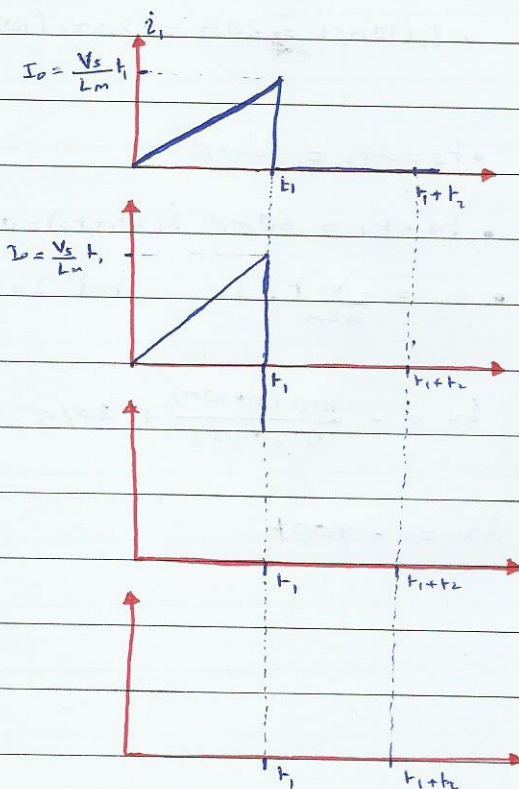 i₁
I₀ = Vs/Lm t₁
t₁ t₁+t₂
I₀ = Vs/Lm t₁
t₁ t₁+t₂
t₁ t₁+t₂
t₁ t₁+t₂